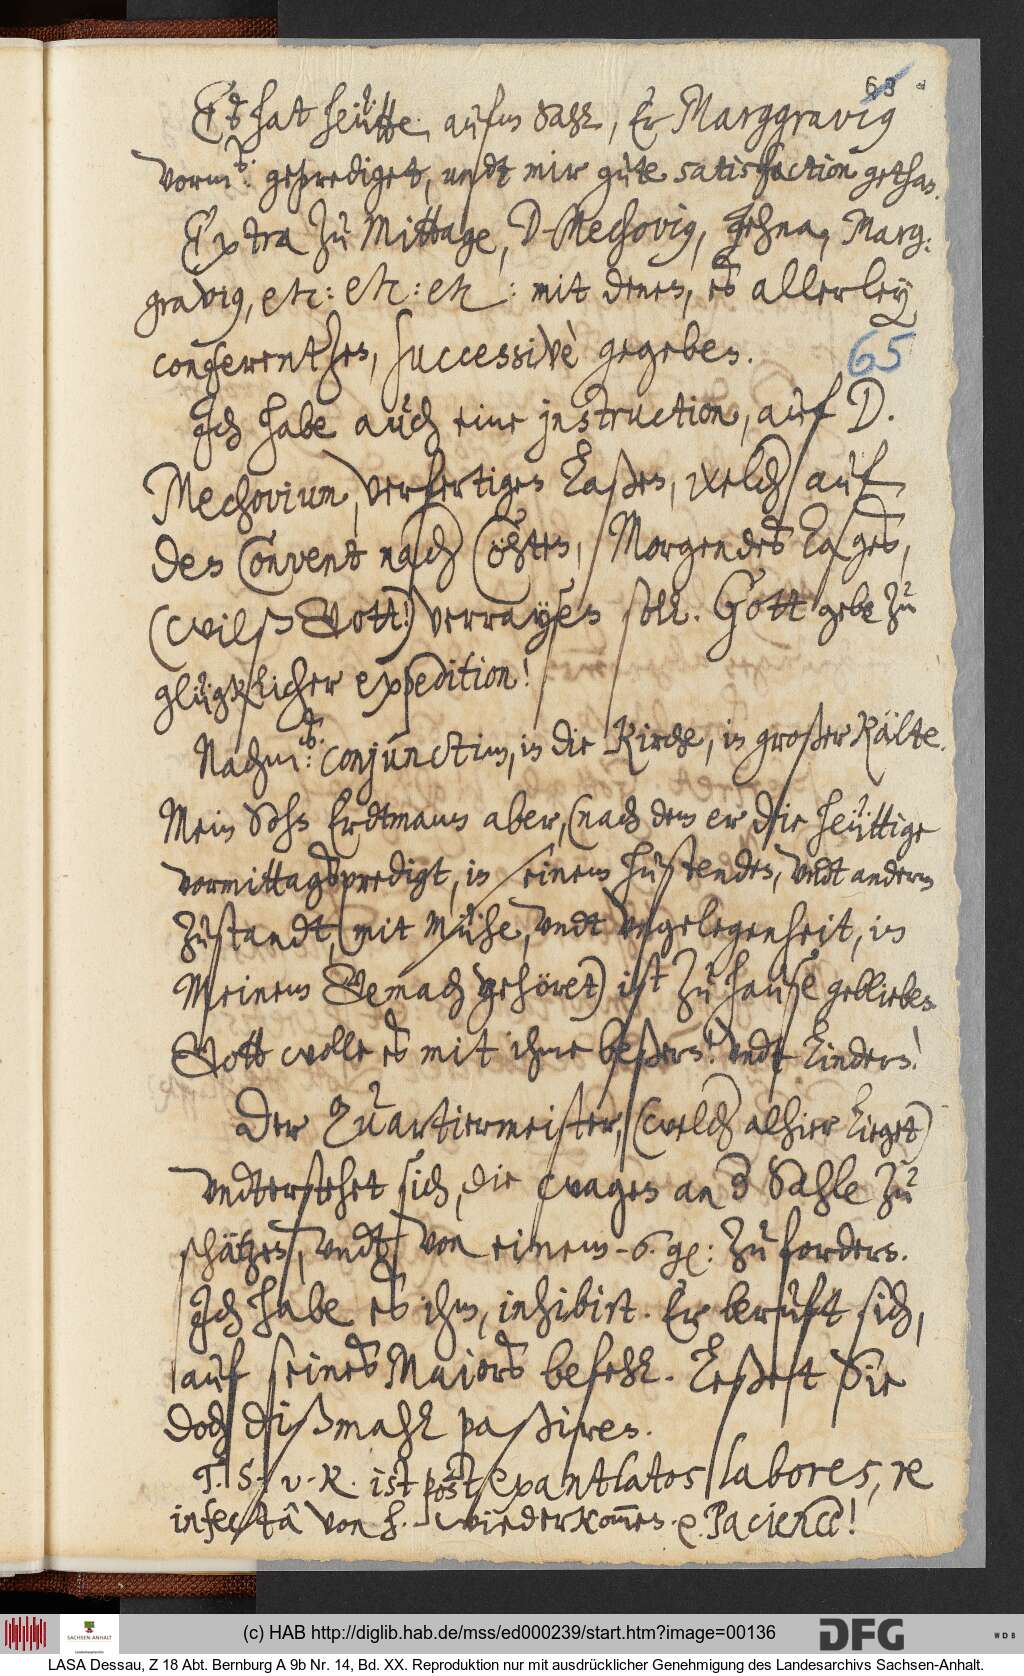 63
Es hat heütte, aufm Sahl, Er Marggravig
vorm: geprediget, undt mir güte satisfaction gethan.
Extra zu Mittage, D. Mechovig, Jehna, Marg-
gravig, etc: etc: etc: mit denen, es allerley
conferentzen, successivè gegeben.
65
Ich habe auch eine instruction, auf D.
Mechovium, verfertigen laßen, welch auf
den Convent nach Cöhten, Morgendes tages,
(wils Gott!) verraysen soll. Gott gebe zu
glügklicher expedition!
Nachm: conjunctim, in die Kirche, in großer Kälte.
Mein Sohn Erdtmann aber, (nach dem er die heüttige
vormittagspredigt, in seinem hustenden, undt andern
zustandt, mit mühe, undt ungelegenheit, in
Meinem Gemach gehöret) ist zu hause geblieben.
Gott wolle es mit ihme beßern! undt lindern!
Der Quartiermeister, (welch alhier lieget)
undterstehet sich, die wagen an der Sahle zu
schätzen, undt von einem 6. gr: zu fordern.
Ich habe es ihm, inhibirt. Er beruft sich,
auf seines Majors befehl. Leßest Sie
doch dißmahl paßiren.
T. S. v. R. ist post exantlatos labores, re
infectâ von h. wiederkommen. e. Pacience!
(c) HAB http://diglib.hab.de/mss/ed000239/start.htm?image=00136
SACHSEN-ANHALT
DFG
WDB
LASA Dessau, Z 18 Abt. Bernburg A 9b Nr. 14, Bd. XX. Reproduktion nur mit ausdrücklicher Genehmigung des Landesarchivs Sachsen-Anhalt.